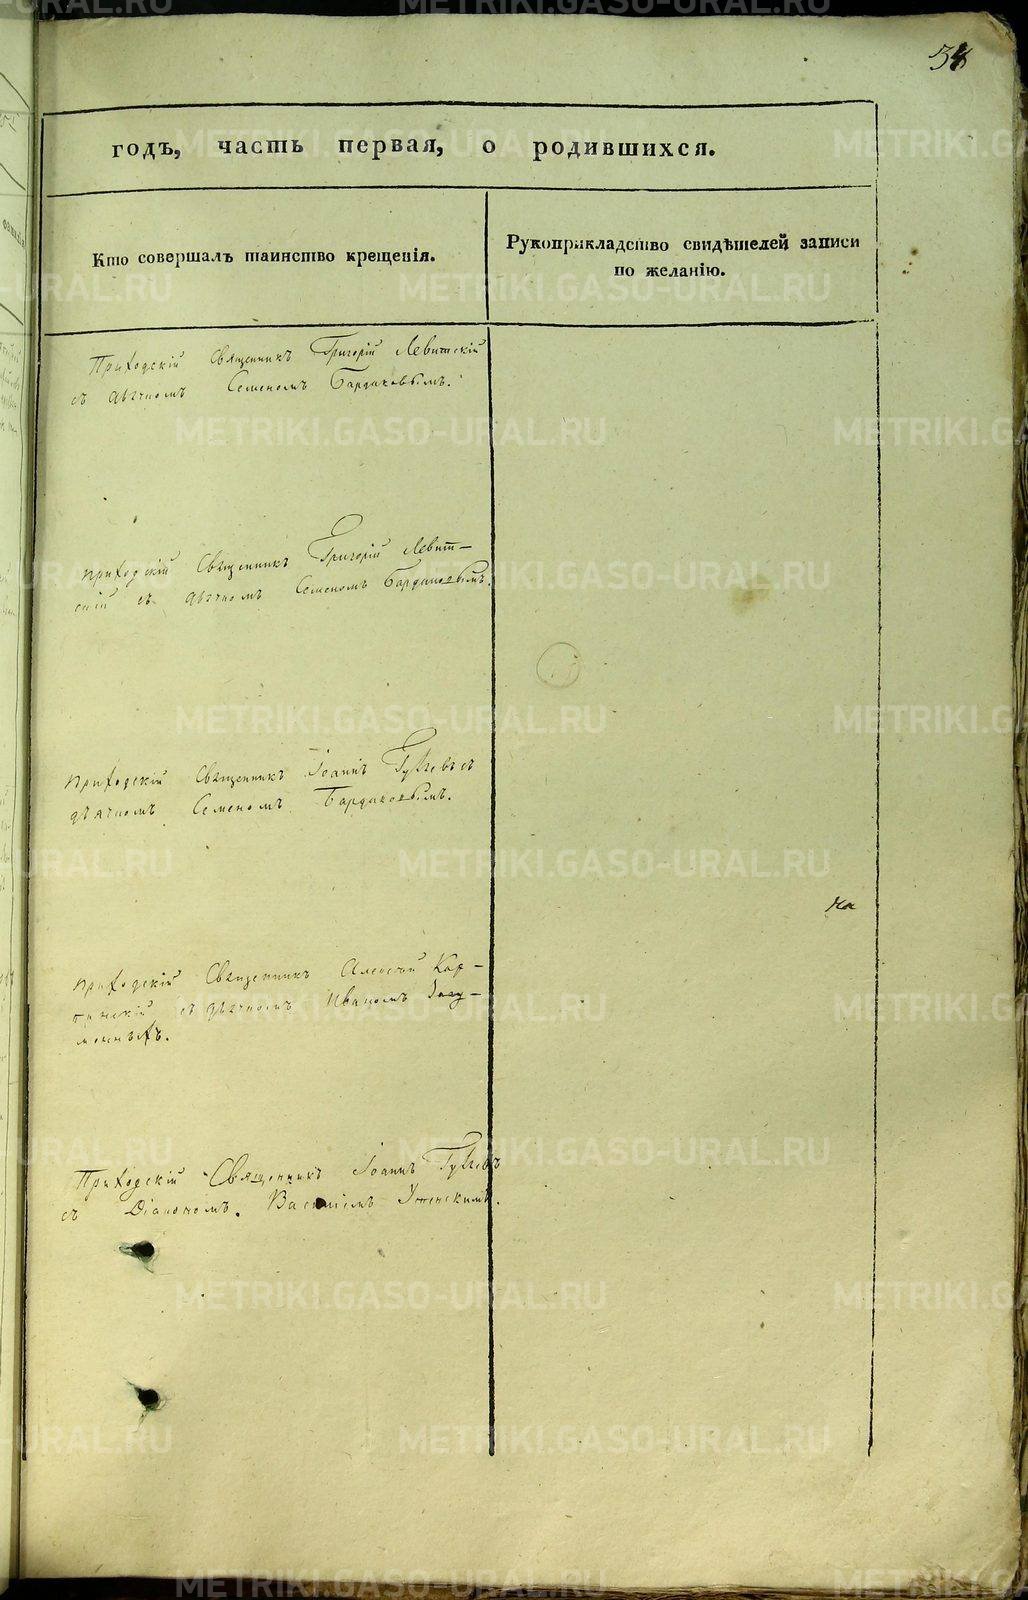 годъ, часть первая, о родившихся.
Кто совершалъ таинство крещенія.
Рукоприкладство свидѣтелей записи
по желанію.
Приходскій Священникъ Григорій Левитскій
съ дьячкомъ Семеномъ Бардаковымъ.
приходскій Священникъ Григорій Левит-
скій съ дьячкомъ Семеномъ Бардаковымъ.
приходскій Священникъ Іоаннъ съ
дьячкомъ Семеномъ Бардаковымъ.
на
приходскій Священникъ Алексей Кар-
пинскій съ дьячкомъ Иваномъ
Приходскій Священникъ Іоаннъ
съ Діакономъ. Василіемъ
METRIKI.GASO-URAL.RU